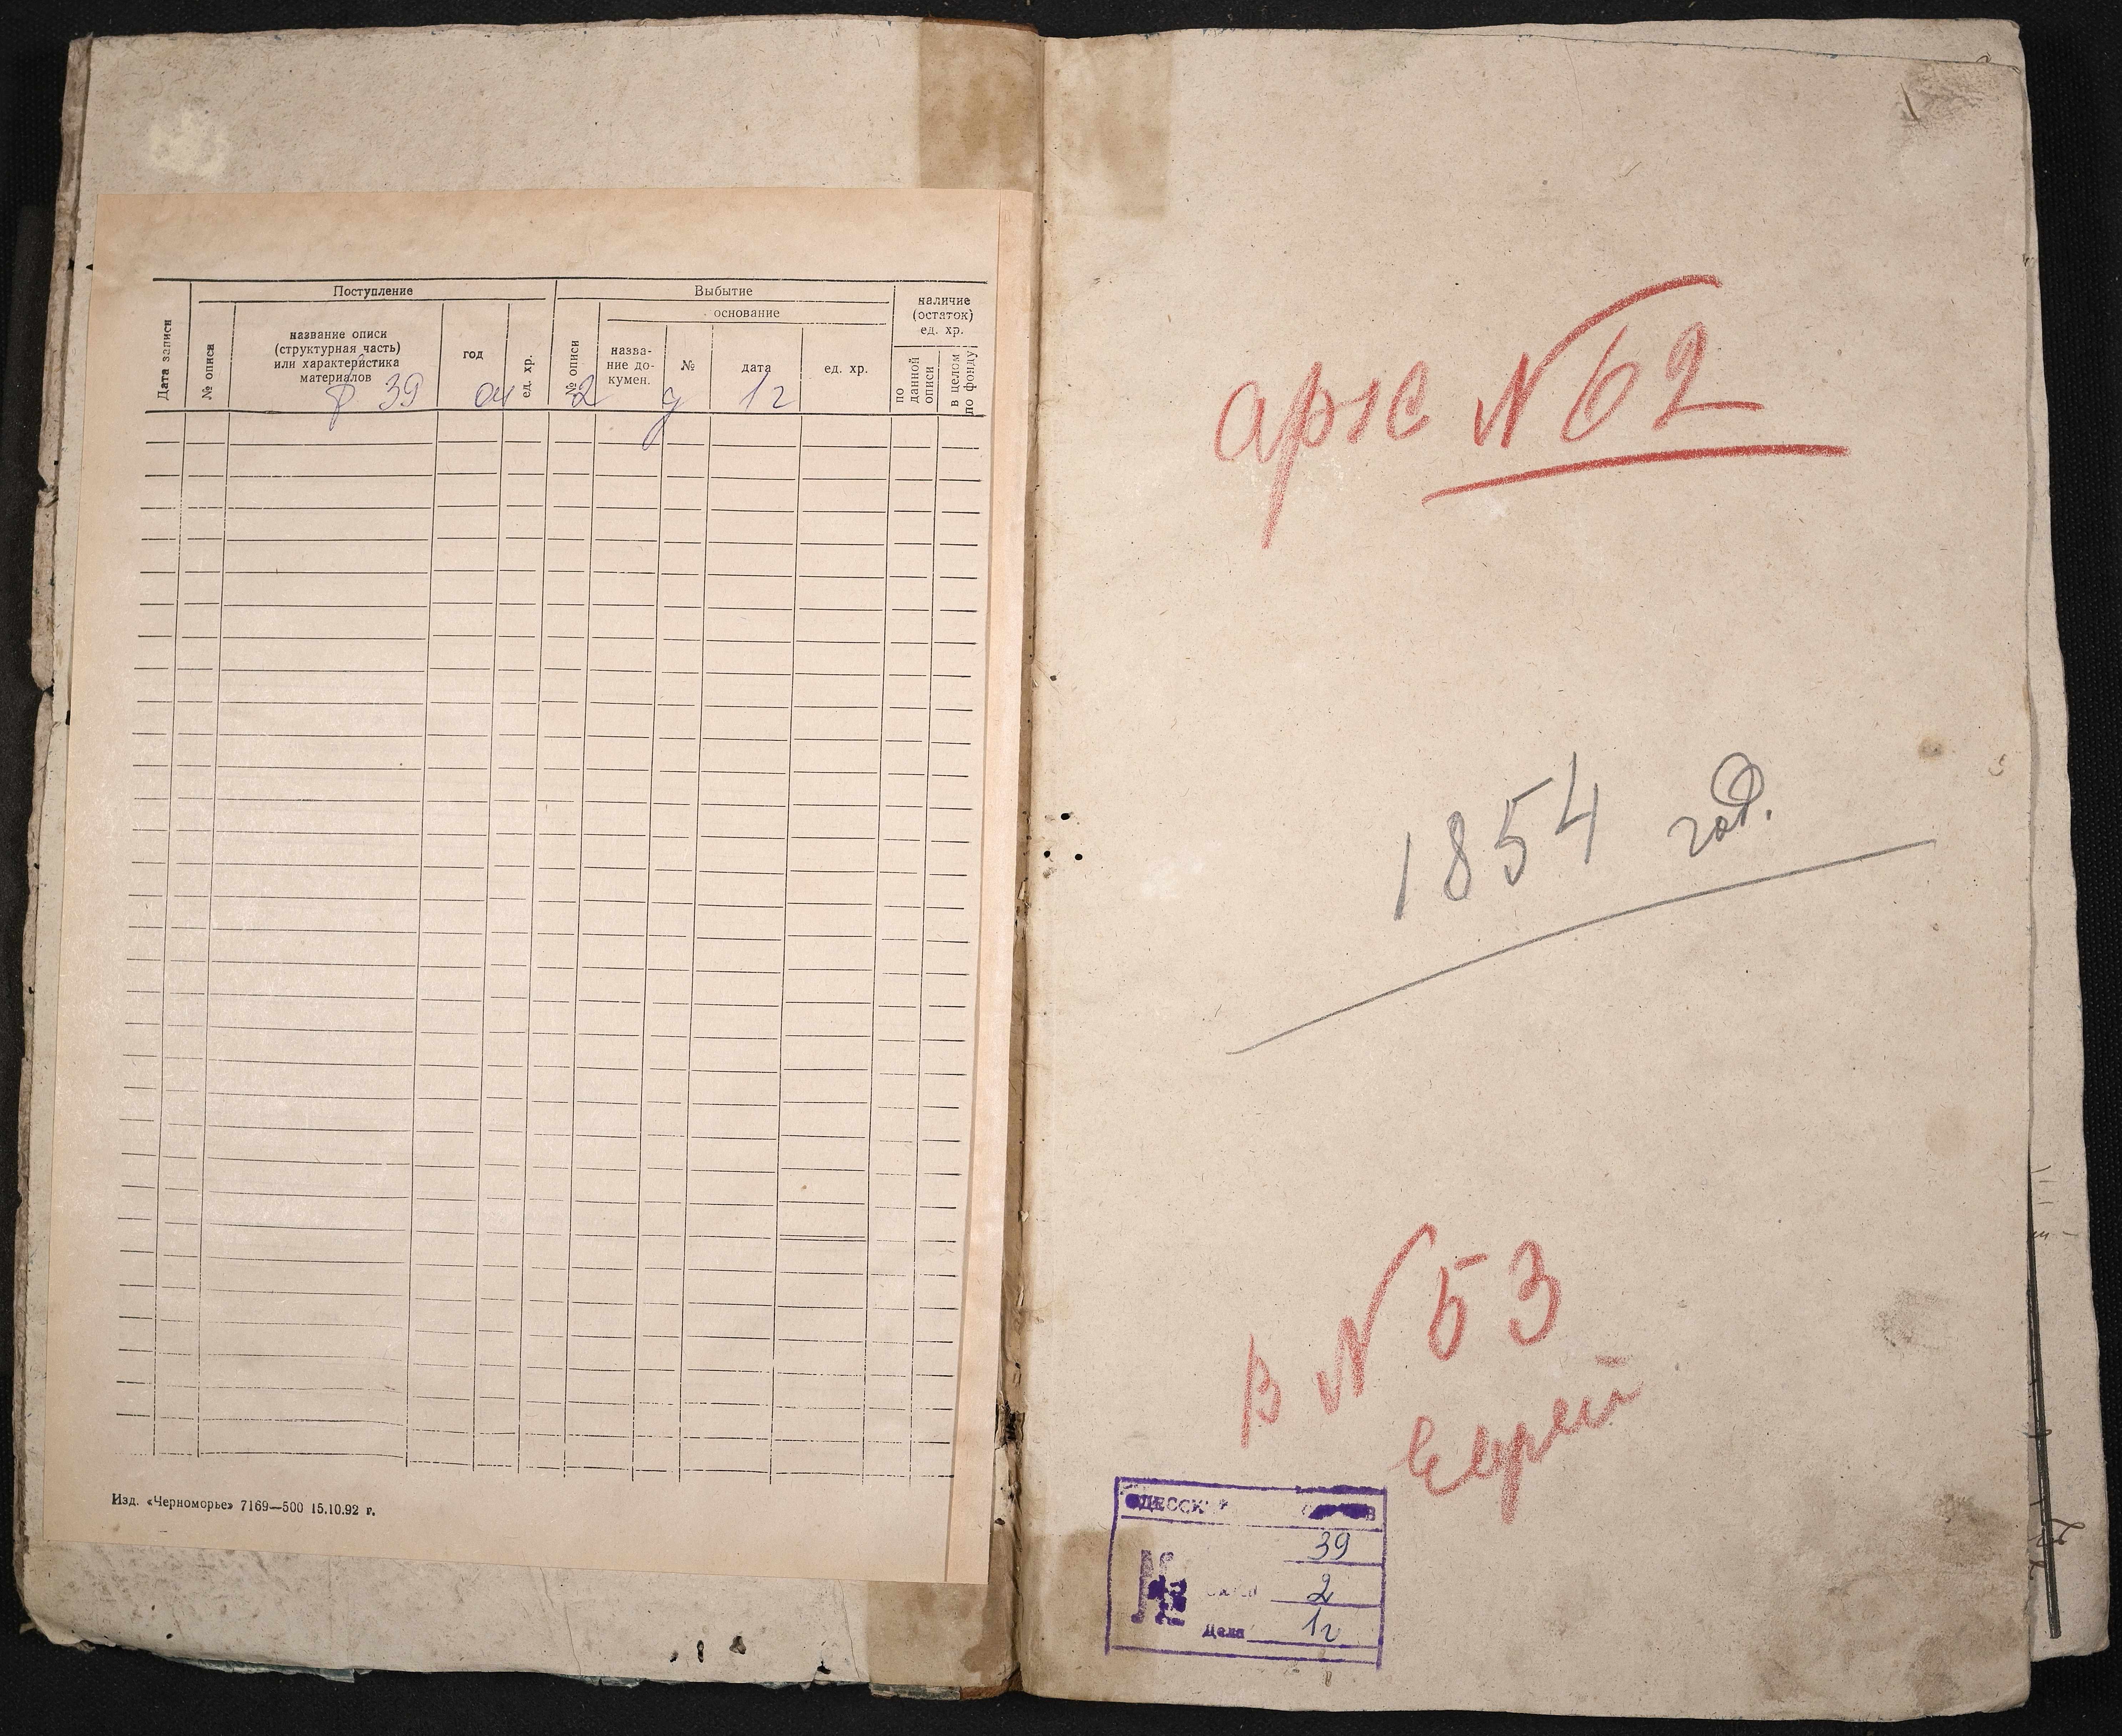 Поступление
Выбытие
наличие
(остаток)
ед. хр.
основание
Дата записи
№ описи
название описи
(структурная часть)
или характеристика
материалов
год
ед. хр.
№ описи
назва-
ние до-
кумен.
№
дата
ед. хр.
по
данной
описи
в целом
по фонду
ф 39 оп 2 д 1г
Изд. «Черноморье» 7169—500 15.10.92 г.
1
№ 62
1854 год.
В № 53
Еврей
39
2
Дела 1г